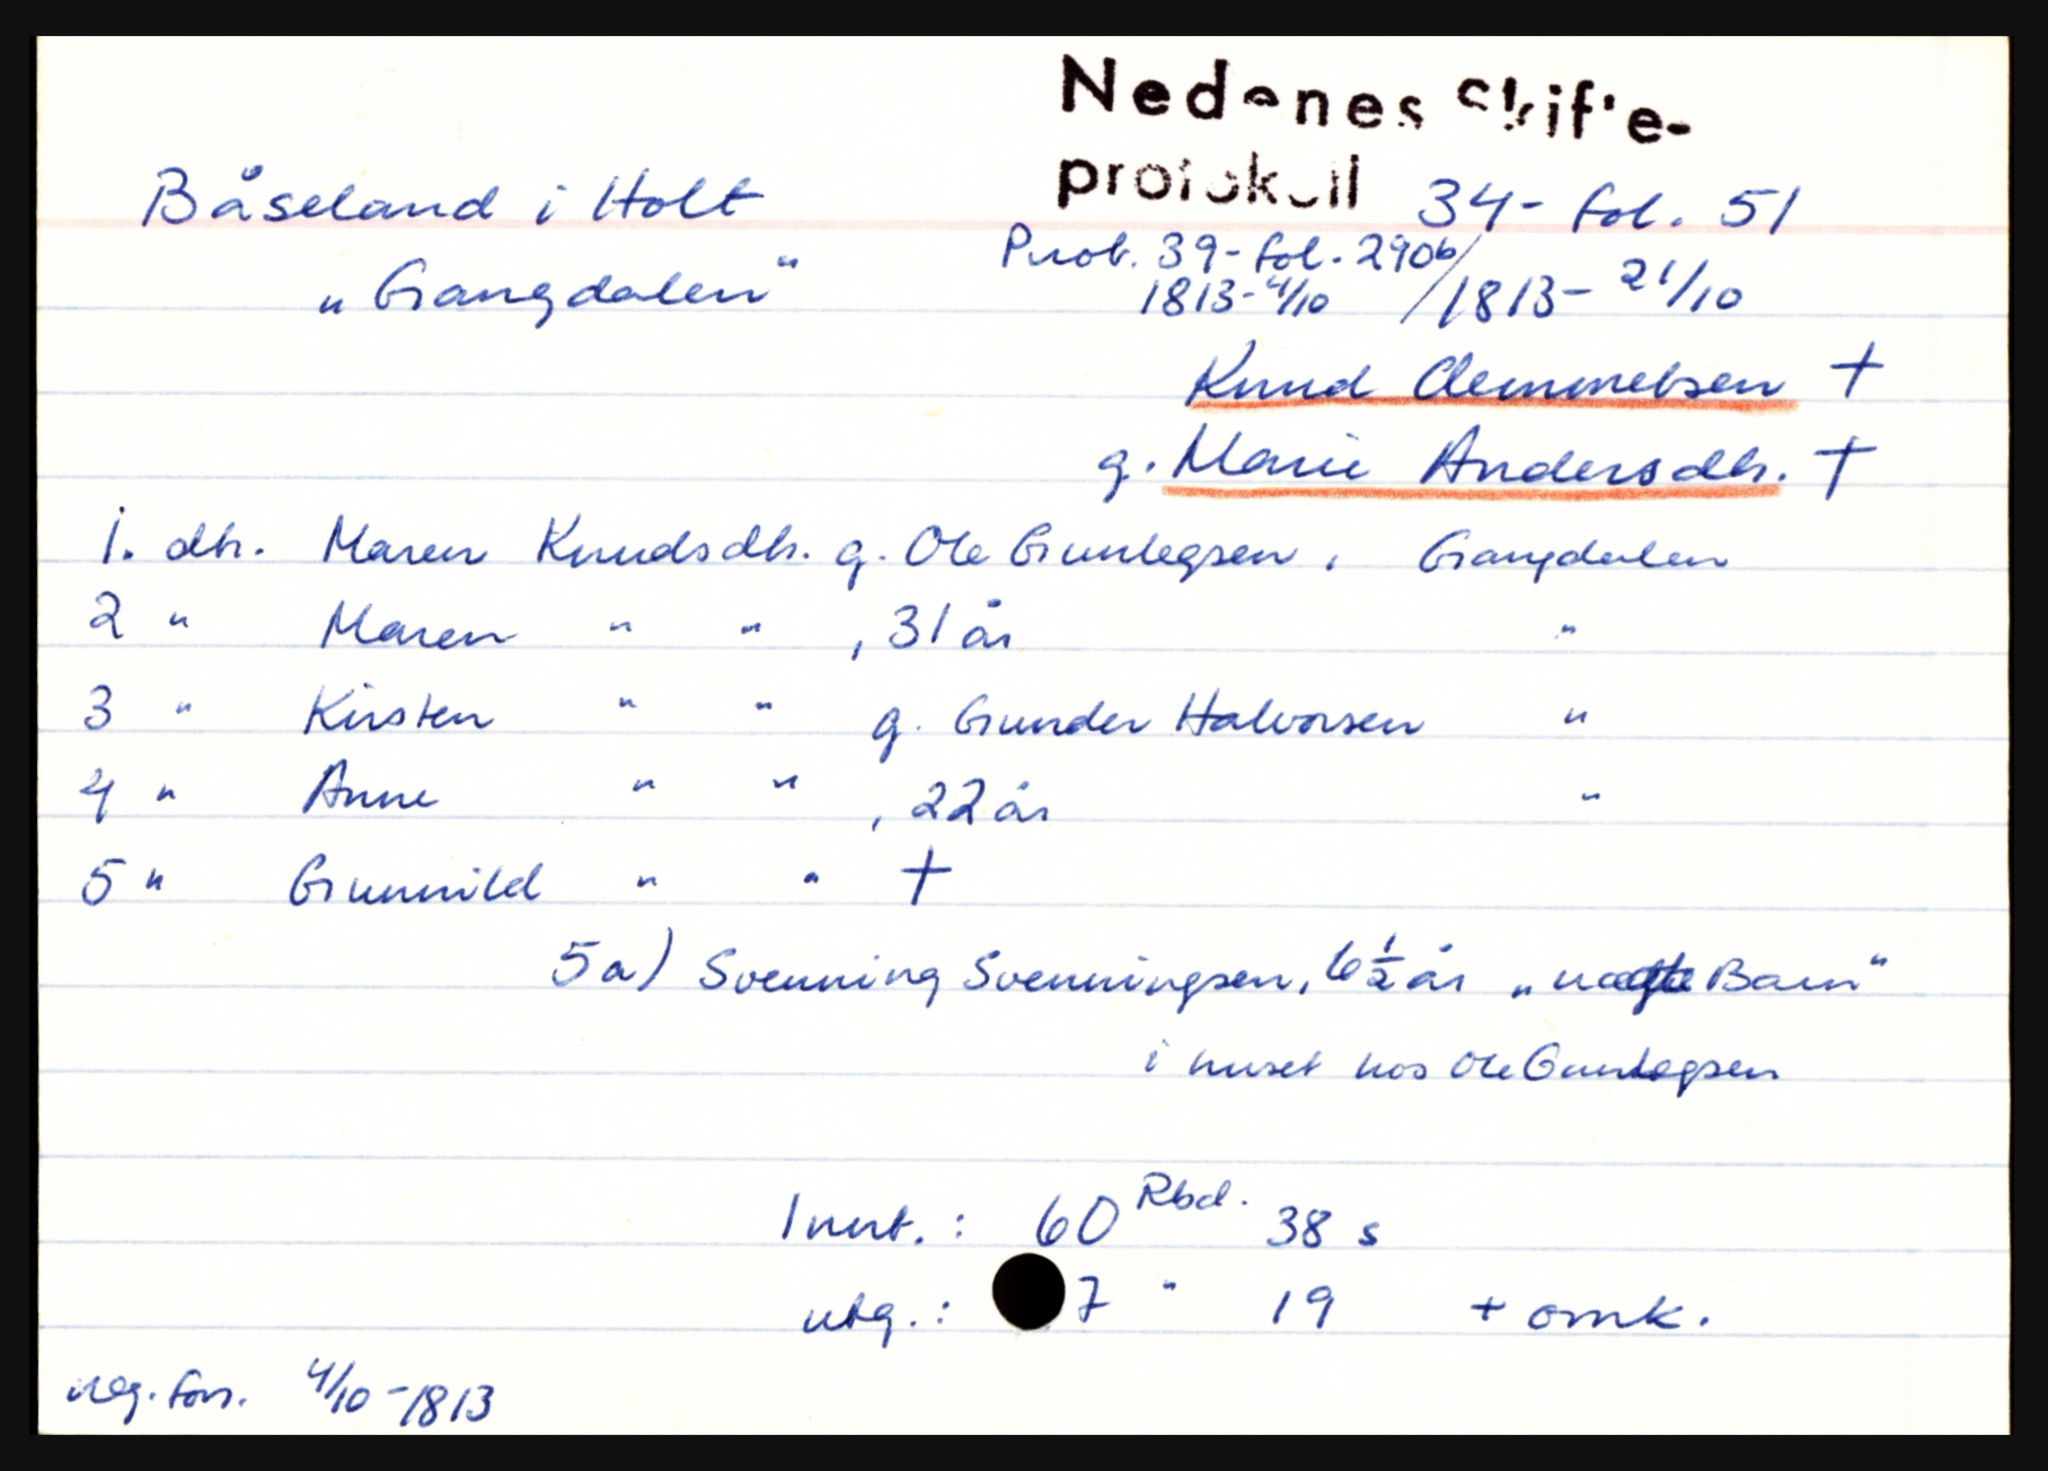 Nedenes Skifte-
protokoll 34- fol. 51
Båseland i Holt
"Gangdalen"
Prot. 39- fol. 290b/
1813- 4/10 /1813- 21/10
Knud Clemmetsen †
g. Marie Andersdtr. †
1. dtr. Maren Knudsdtr. g. Ole Gunlegsen, Gangdalen
2 " Maren " " , 31 år "
3 " Kirsten " " g. Gunder Halvorsen "
4 " Anne " " , 22 år "
5 " Gunnild " " †
5a) Svenning Svenningsen, 6 1/2 år " Barn"
i huset hos Ole Gunlegsen
Innt.: 60 Rbd. 38 s
utg.: 7 " 19 + omk.
reg. forr. 4/10 - 1813